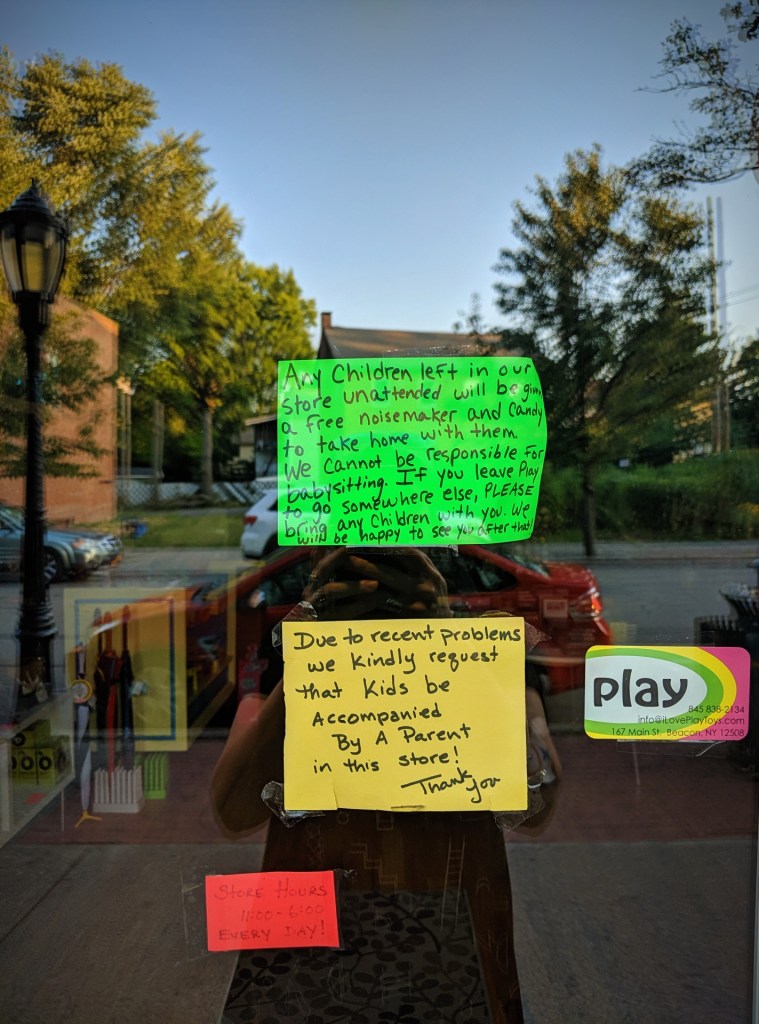 Any Children left in our
store unattended will be given
a free noisemaker and candy
to take home with them.
We cannot be responsible for
babysitting. If you leave Play
to go somewhere else, PLEASE
bring any children with you. We
will be happy to see you after that!
Due to recent problems
we kindly request
that kids be
Accompanied
By A Parent
in this store!
Thank you
play
845 838-2134
info@iLovePlayToys.com
167 Main St. Beacon, NY 12508
STORE HOURS
11:00-6:00
EVERY DAY!